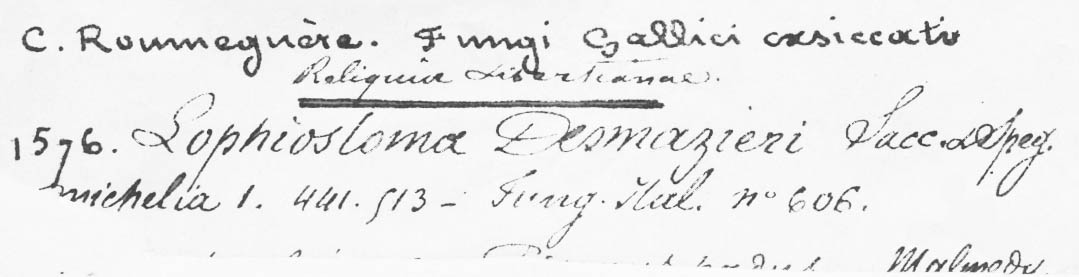 C. Roumeguère. Fungi Gallici exsiccati
Reliquiae Libertianae.
1576. Lophiostoma Desmazieri Sacc. & Speg.
Michelia 1. 441. 513 – Fung. Ital. n° 606.
Malmedy